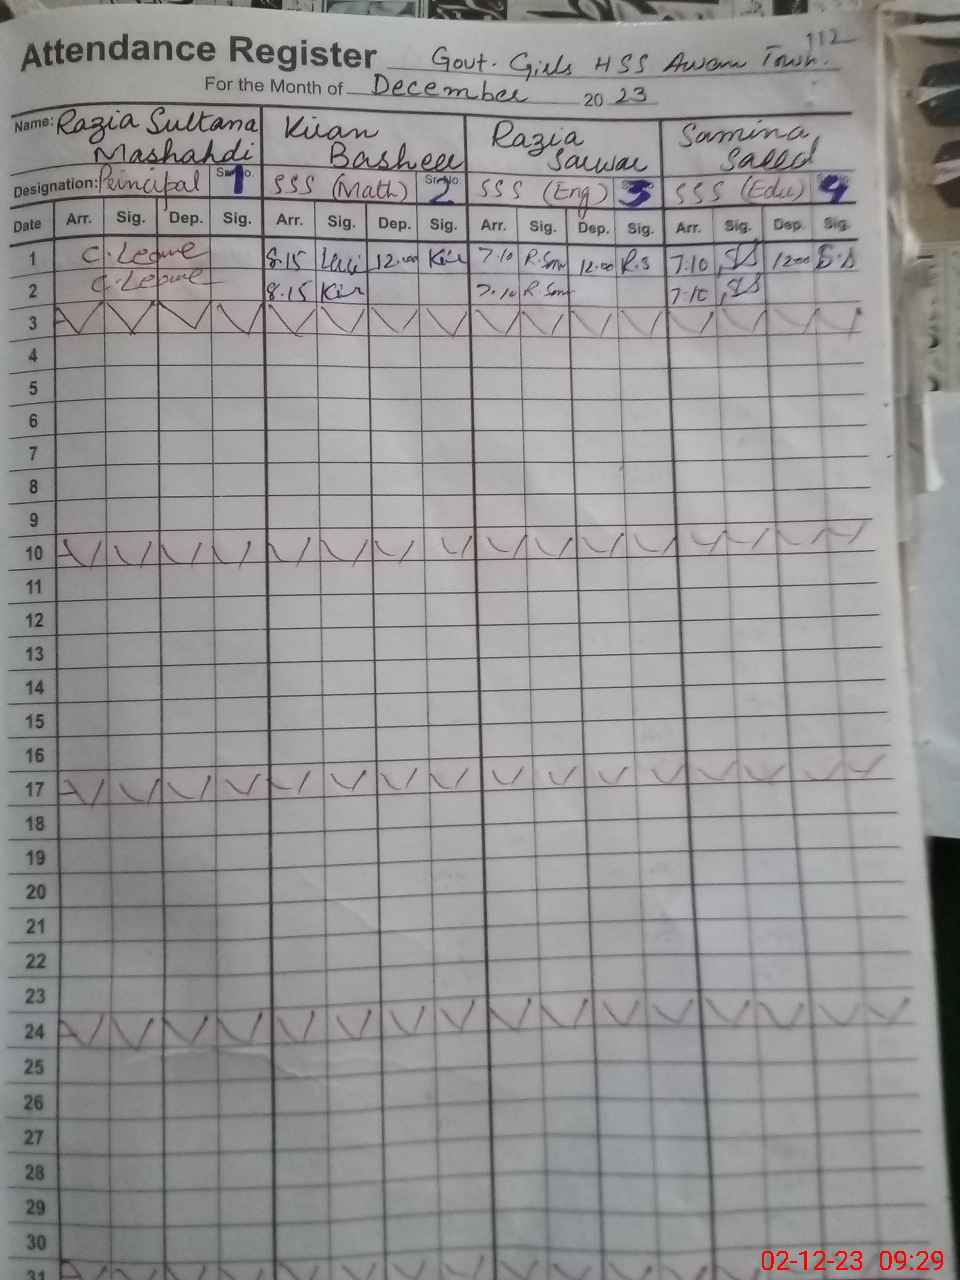 112
Attendance Register Govt. Girls HSS Awam Town.
For the Month of December 2023
Name: Razia Sultana Mashahdi Kiran Basheer Razia Sarwar Samina Saeed
Designation: Principal Sr. No. 1 SSS (Math) Sr. No. 2 SSS (Eng) 3 SSS (Edu) 4
Date Arr. Sig. Dep. Sig. Arr. Sig. Dep. Sig. Arr. Sig. Dep. Sig. Arr. Sig. Dep. Sig.
1 C. Leave 8.15 12.00 Kir 7.10 R.Sarw 12.00 R.S 7.10 SS 12.00 S.S
2 C. Leave 8.15 Kir 7.10 R.Sarw 7.10 SS
3
4
5
6
7
8
9
10
11
12
13
14
15
16
17
18
19
20
21
22
23
24
25
26
27
28
29
30
31
02-12-23 09:29